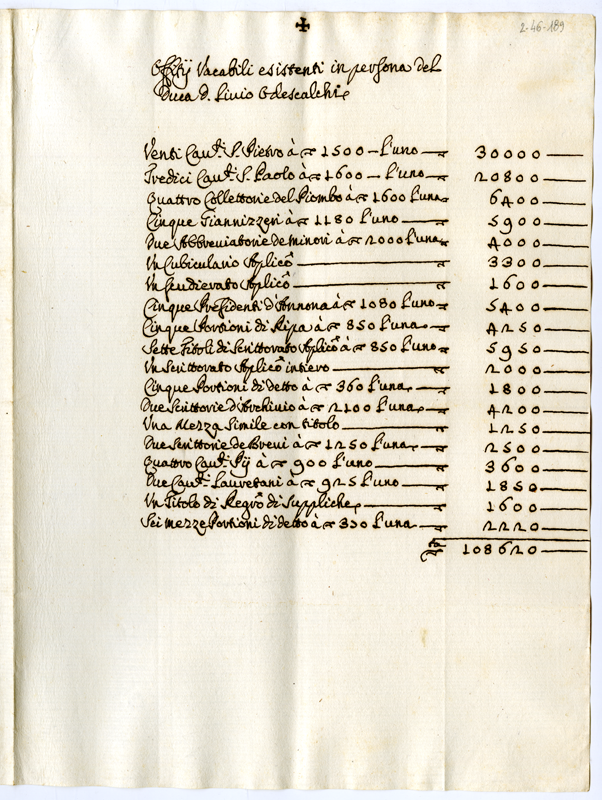 2-46-189
Offitij Vacabili esistenti in persona del
Duca D. Livio Odescalchi
Venti Cau.ri S. Pietro à 1500 – l'uno 30000
Tredici Cau.ri S. Paolo à 1600 – l'uno 20800
Quattro Collettorie del Piombo à 1600 l'una 6400
Cinque Giannizzeri à 1180 l'uno 5900
Due Abbreviatorie de minori à 2000 l'una 4000
Un Cubiculario Aplicô 3300
Un Scudierato Aplicô 1600
Cinque Presidenti d'Annona à 1080 l'uno 5400
Cinque Portioni di Ripa à 850 l'una 4250
Sette Titoli di Scrittorato Aplicô à 850 l'uno 5950
Un Scrittorato Aplicô intiero 2000
Cinque Portioni di detto à 360 l'una 1800
Due Scrittorie d'Archivio à 2100 l'una 4200
Una Mezza Simile con titolo 1250
Due Scrittorie de Brevi à 1250 l'una 2500
Quattro Cau.ri Pij à 900 l'uno 3600
Due Cau.ri Lauretani à 925 l'uno 1850
Un Titolo di Regrô di Suppliche 1600
Sei mezze Portioni di detto à 330 l'una 2220
108620